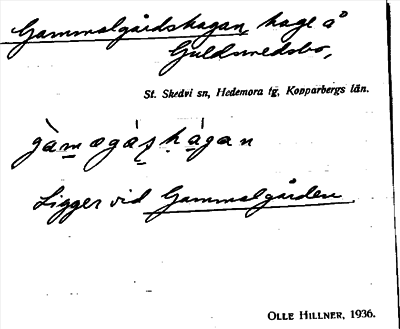 Gammalgårdshagan, hage å
Guldsmedsbo,
St. Skedvi sn, Hedemora tg, Kopparbergs län.
Ligger vid Gammalgården.
OLLE HILLNER, 1936.